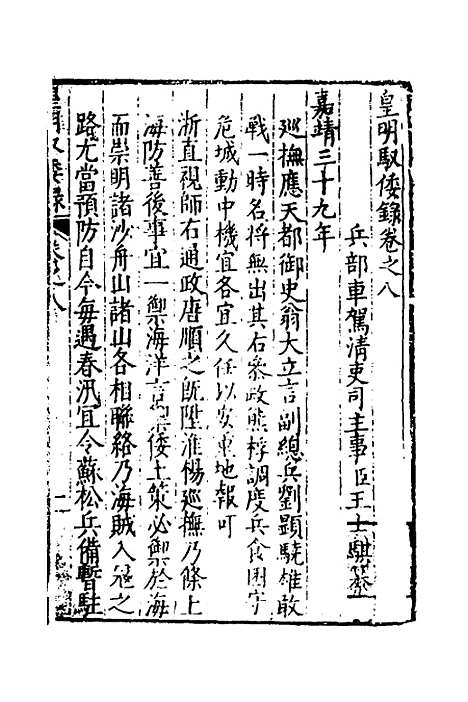 皇明馭倭錄卷之八
兵部車駕清吏司主事臣王士騏纂
嘉靖三十九年
巡撫應天都御史翁大立言副總兵劉顯驍雄敢
戰一時名將無出其右叅政熊桴調度兵食困守
危城動中機宜各宜久任以安重地報可
浙直視師右通政唐順之既陞淮楊巡撫乃條上
海防善後事宜一禦海洋言禦倭上策必禦於海
而崇明諸沙舟山諸山各相聯絡乃海賊入寇之
路尤當預防自今每遇春汛宜令蘇松兵備暫駐
皇明馭倭錄 卷之八 一